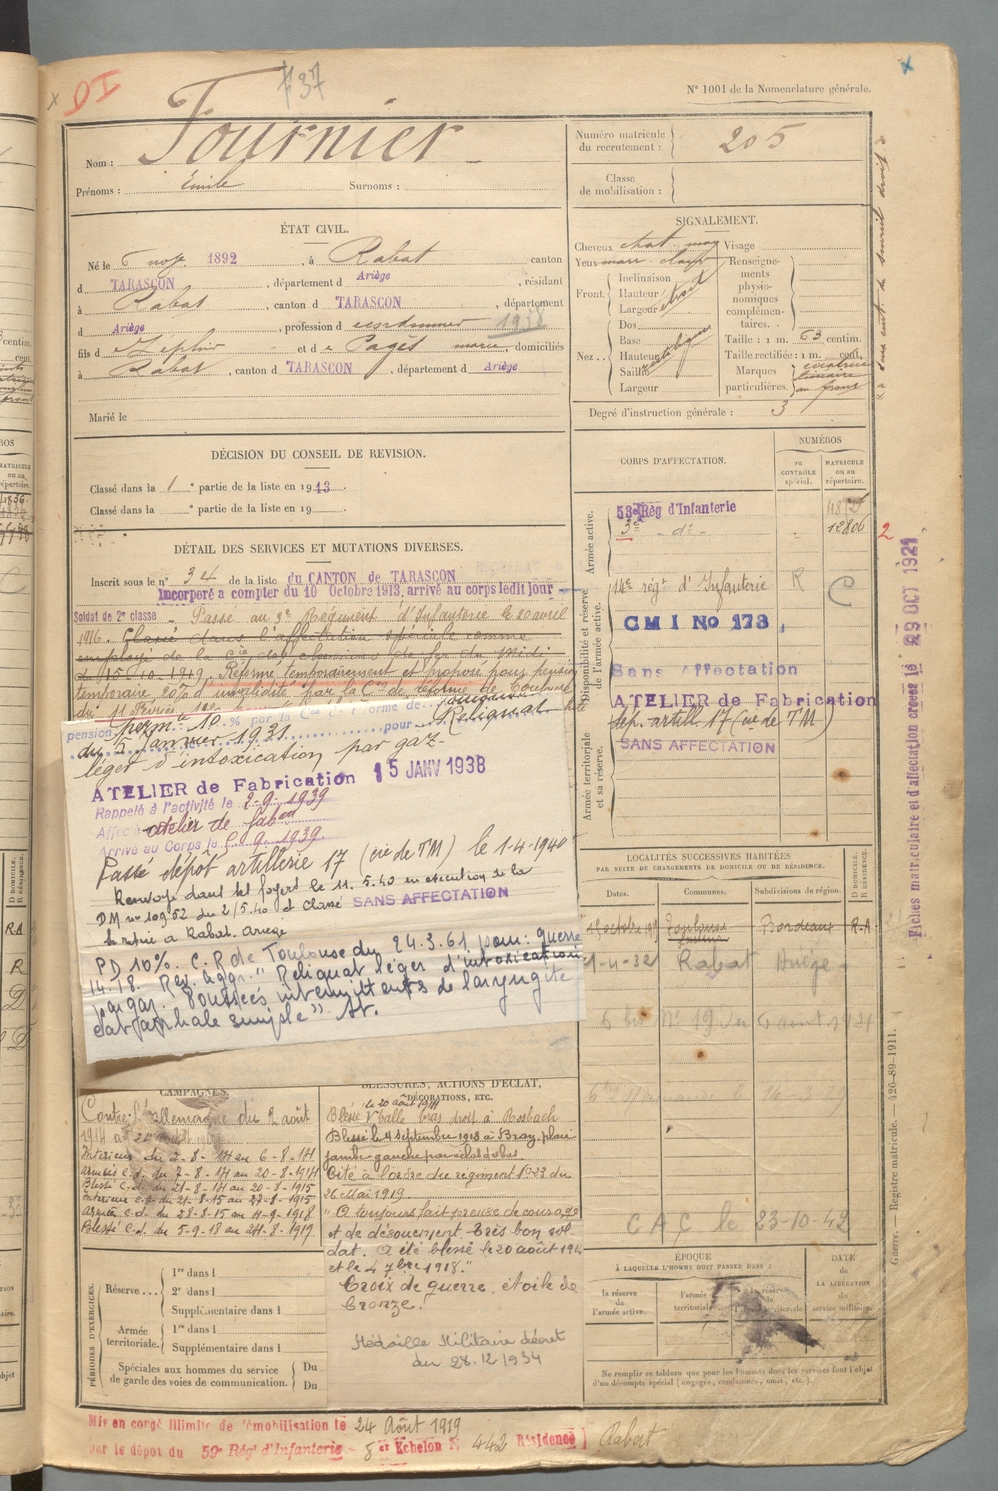 N° 1001 de la Nomenclature générale.
F37
Nom : Fournier
Prénoms : Emile Surnoms :
Numéro matricule du recrutement : 205
Classe de mobilisation :
ÉTAT CIVIL.
Né le 6 nov. 1892, à Rabat canton
d TARASCON, département d Ariège, résidant
à Rabat, canton d TARASCON, département
d Ariège, profession d cordonnier 1938
fils d Zéphir et de Pagès marie, domiciliés
à Rabat, canton d TARASCON, département d Ariège
Marié le
SIGNALEMENT.
Cheveux chat. Visage
Yeux marr. clair Renseigne-
Front. Inclinaison ments
Hauteur physio-
Largeur nomiques
Dos complémen-
Nez.. Base taires.
Hauteur Taille : 1 m. 63 centim.
Saillie Taille rectifiée : 1 m. cent.
Largeur Marques particulières. cicatrice linéaire au front
Degré d'instruction générale : 3
DÉCISION DU CONSEIL DE REVISION.
Classé dans la 1e partie de la liste en 1913.
Classé dans la e partie de la liste en 19
CORPS D'AFFECTATION.
NUMÉROS
au CONTRÔLE spécial.
MATRICULE ou au répertoire.
Armée active.
53e Rég d'Infanterie
3e - d° - 12806
Disponibilité et réserve de l'armée active.
14e régt d'Infanterie R C
CMI No 173
Sans Affectation
ATELIER de Fabrication
dép. artill 17 (cie de TM)
SANS AFFECTATION
Armée territoriale et sa réserve.
DÉTAIL DES SERVICES ET MUTATIONS DIVERSES.
Inscrit sous le n° 34 de la liste du CANTON de TARASCON
Incorporé a compter du 10 Octobre 1913, arrivé au corps ledit jour
Soldat de 2e classe - Passé au 3e Régiment d'Infanterie le 20 avril
1916. Classé dans l'affectation spéciale comme
employé de la Cie des chemins de fer du Midi
du 15-10-1919. Réformé temporairement et proposé pour pension
temporaire 20% d'invalidité par la Con de réforme de Toulouse
du 11 Février
pension permte 10 % par la Con de réforme de Toulouse
du 5 Janvier 1931 pour Reliquat
léger d'intoxication par gaz -
ATELIER de Fabrication 15 JANV 1938
Rappelé à l'activité le 2-9-1939
Affecté atelier de fabon
Arrivé au Corps le 9.1939.
Passé dépôt artillerie 17 (cie de TM) le 1-4-1940
Renvoyé dans ses foyers le 11.5.40 en exécution de la
DM n° 10952 du 2/5.40 et classé SANS AFFECTATION
Se retire à Rabat. Ariège
PD 10%. C.R de Toulouse du 24.3.61 pour : guerre
14.18. Rev. Aggr. "Reliquat léger d'intoxication
par gaz. Poussées intermittentes de laryngite
catarrhale simple" At.
LOCALITÉS SUCCESSIVES HABITÉES
PAR SUITE DE CHANGEMENTS DE DOMICILE OU DE RÉSIDENCE.
Dates. Communes. Subdivisions de région. D DOMICILE. R RÉSIDENCE.
Toulouse Bordeaux R.A
1-4-32 Rabat Ariège
CAMPAGNES.
Contre l'allemagne du 2 août
1914 à
Intérieur du 2-8-14 au 6-8-14
Armées c.d. du 7-8-14 au 20-8-1914
Blessé c.d. du 21-8-14 au 20-8-1915
Intérieur c.d. du 21-8-15 au 27-8-1915
Armée c.d. du 28-8-15 au 4-9-1918
Blessé c.d. du 5-9-18 au 24-8-1919
BLESSURES, ACTIONS D'ÉCLAT, DÉCORATIONS, ETC.
le 20 août 1914
Blessé balle bras droit à Rosbach
Blessé le 4 septembre 1918 à Bray. plaie
jambe gauche par éclat d'obus
Cité à l'ordre du régiment N°23 du
26 Mai 1919
"A toujours fait preuve de courage
et de dévouement. très bon sol-
dat. A été blessé le 20 août 1914
et le 4 7bre 1918."
Croix de guerre, étoile de
bronze.
Médaille Militaire décret
du 28.12.1934
CAC le 23-10-42
PÉRIODES D'EXERCICES.
Réserve... 1re dans l
2e dans l
Supplémentaire dans l
Armée territoriale. 1re dans l
Supplémentaire dans l
Spéciales aux hommes du service de garde des voies de communication. Du
Du
ÉPOQUE
À LAQUELLE L'HOMME DOIT PASSER DANS :
la réserve de l'armée active.
l'armée territoriale.
la réserve de l'armée territoriale.
DATE de LA LIBÉRATION du service militaire.
Ne remplir ce tableau que pour les hommes dont les services font l'objet
d'un décompte spécial (engagés, condamnés, omis, etc.).
Mis en congé illimité de démobilisation le 24 Août 1919
par le dépôt du 59e Régt d'Infanterie - 8er Echelon N° 442 Résidence Rabat
Fiches matriculaire et d'affectation créées le 29 OCT 1921
Guerre. — Registre matricule. — 420-89-1911.